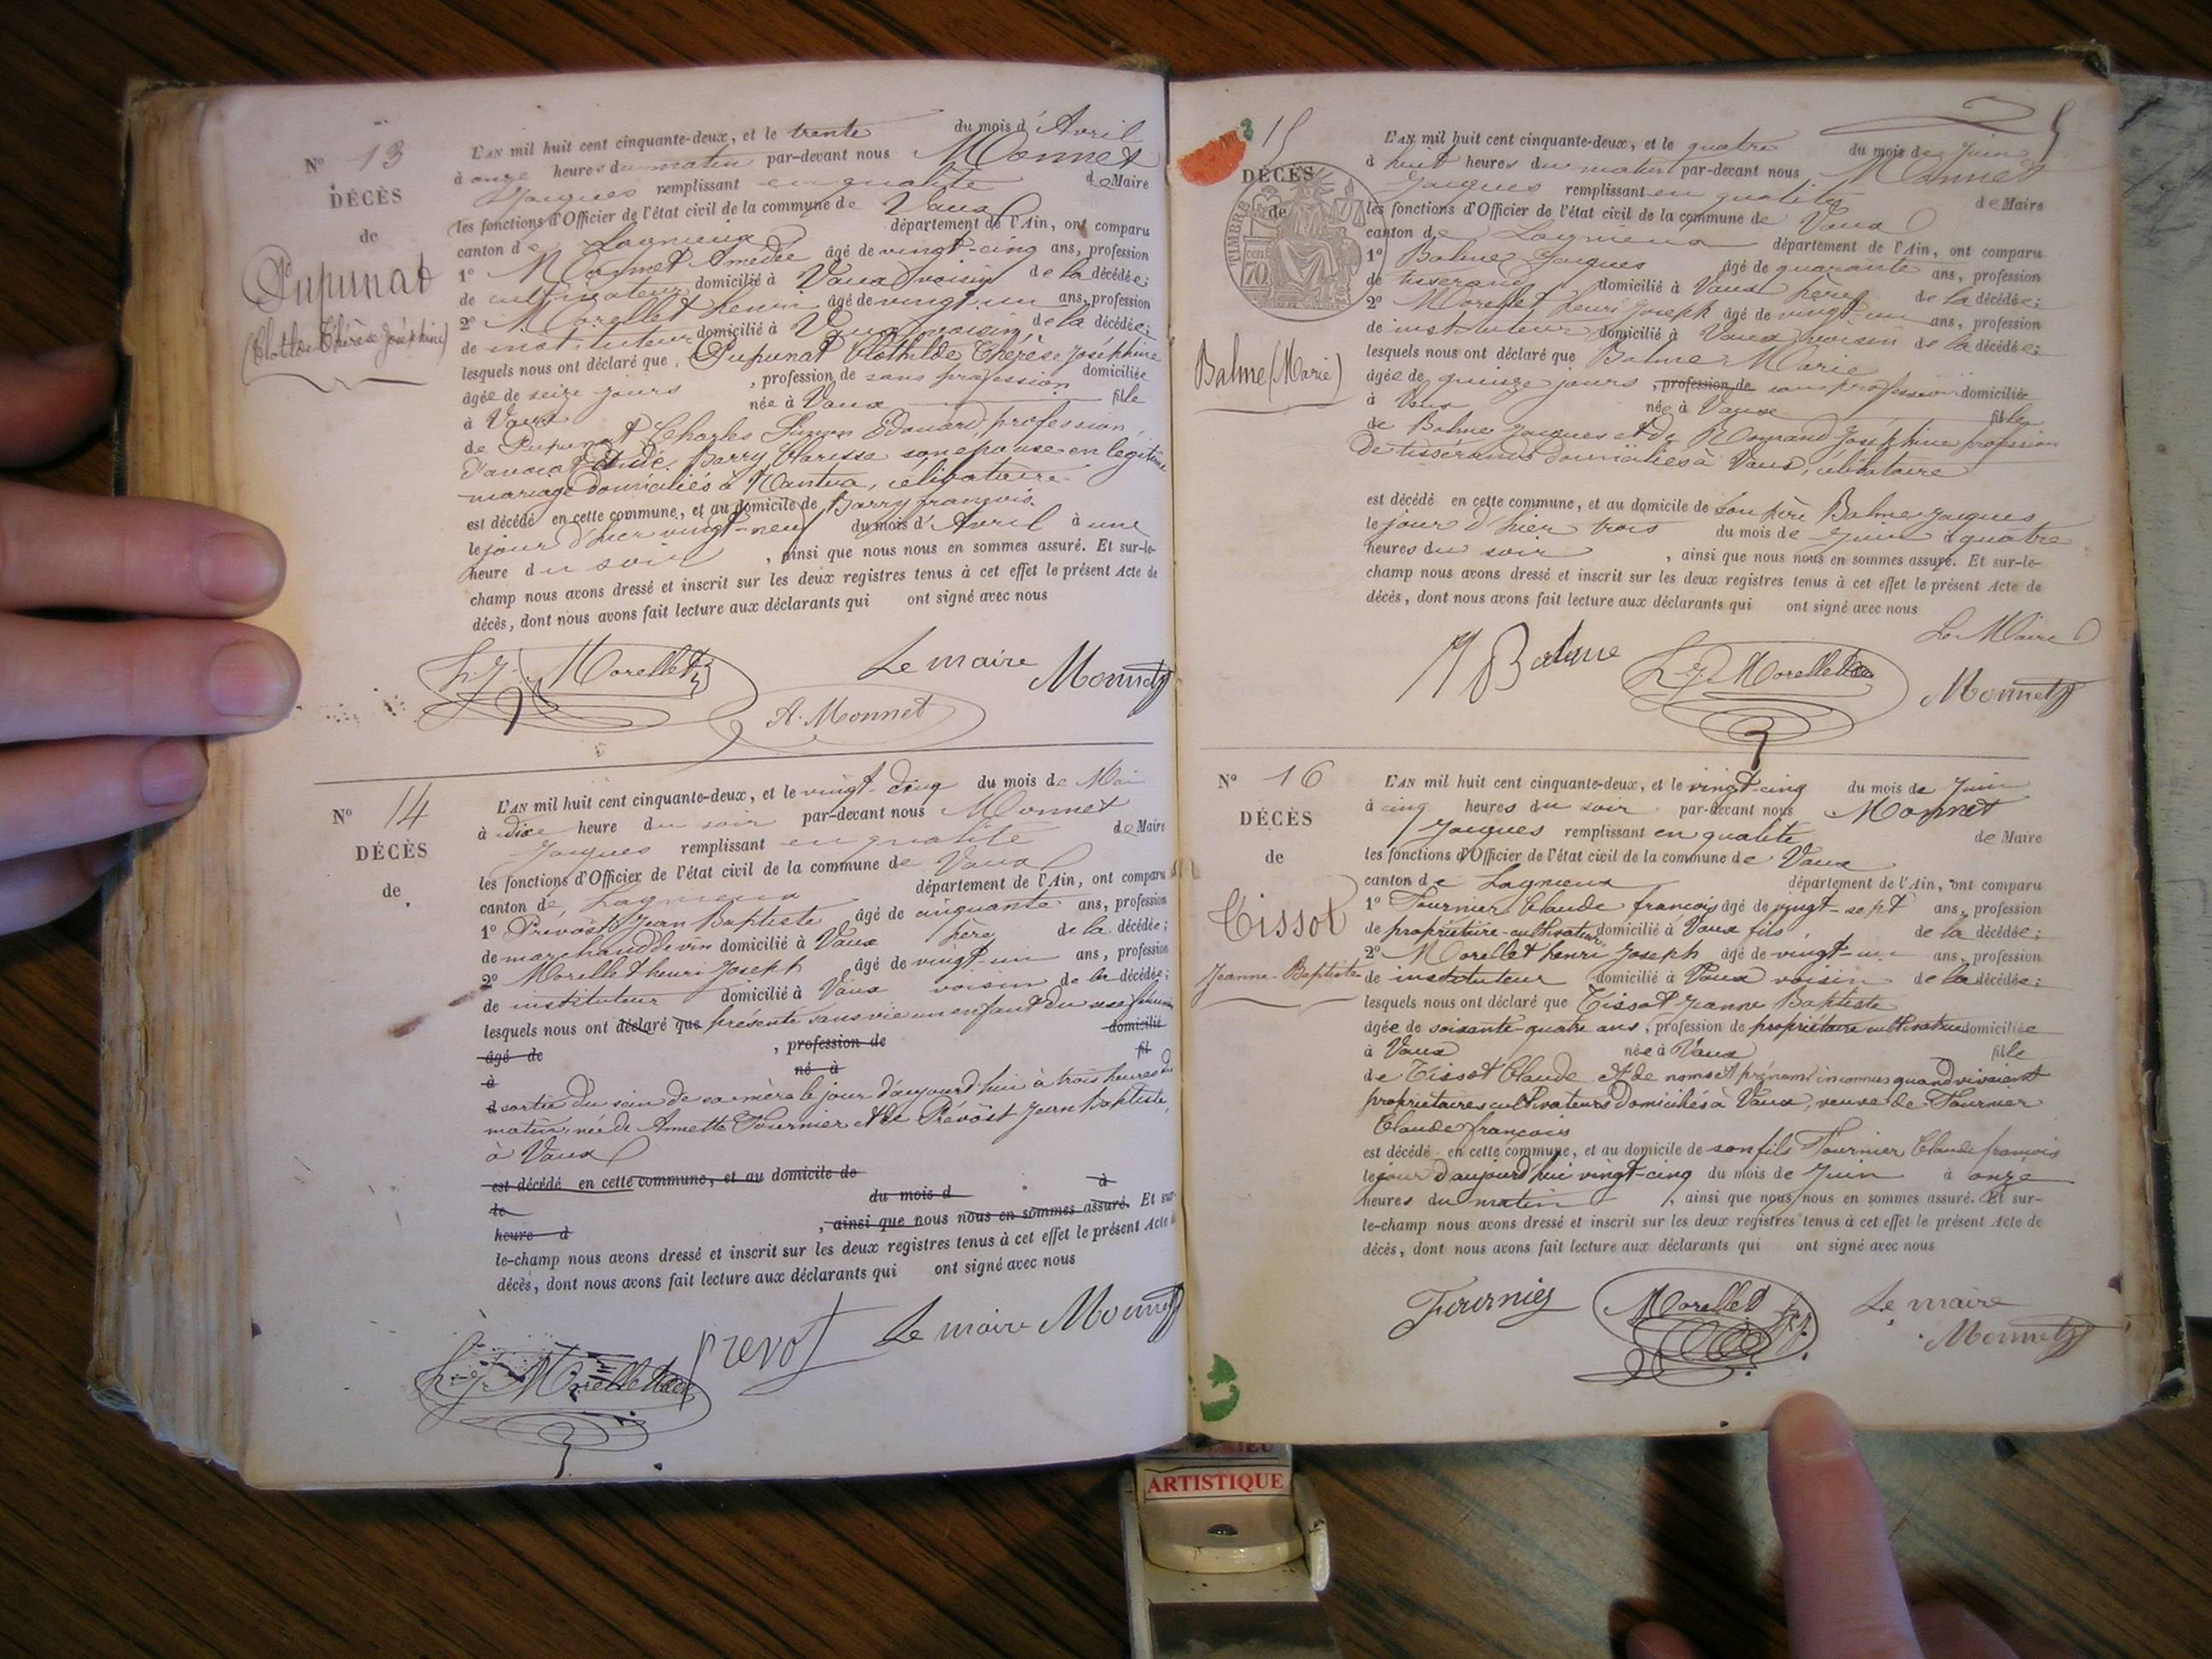 N° 13
DÉCÈS
de
Pupunat
(Clotilde Thérèse Joséphine)
L'AN mil huit cent cinquante-deux, et le trente du mois d'Avril
à onze heures du matin par-devant nous Monnet
Jacques remplissant en qualité de Maire
les fonctions d'Officier de l'état civil de la commune de Vaux
canton de Lagnieux département de l'Ain, ont comparu
1° Monnet Amédée âgé de vingt-cinq ans, profession
de cultivateur domicilié à Vaux voisin de la décédée;
2° Morellet henri âgé de vingt-un ans, profession
de instituteur domicilié à Vaux voisin de la décédée;
lesquels nous ont déclaré que Pupunat Clothilde Thérèse Joséphine
âgée de seize jours, profession de sans profession domiciliée
à Vaux née à Vaux fille
de Pupunat Charles Simon Edouard, profession
d'avocat et de Barry Clarisse son épouse en légitime
mariage domiciliés à Nantua, célibataire
est décédé en cette commune, et au domicile de Barry françois.
le jour d'hier vingt-neuf du mois d'Avril à une
heure du soir, ainsi que nous nous en sommes assuré. Et sur-le-
champ nous avons dressé et inscrit sur les deux registres tenus à cet effet le présent Acte de
décès, dont nous avons fait lecture aux déclarants qui ont signé avec nous
h. J. Morellet Le maire Monnet
A. Monnet
N° 14
DÉCÈS
de
L'AN mil huit cent cinquante-deux, et le vingt-cinq du mois de Mai
à dix heure du soir par-devant nous Monnet
Jacques remplissant en qualité de Maire
les fonctions d'Officier de l'état civil de la commune de Vaux
canton de Lagnieux département de l'Ain, ont comparu
1° Prevost Jean Baptiste âgé de cinquante ans, profession
de marchand de vin domicilié à Vaux père de la décédée;
2° Morellet henri Joseph âgé de vingt-un ans, profession
de instituteur domicilié à Vaux voisin de la décédée;
lesquels nous ont déclaré que présente sans vie un enfant du sexe féminin
âgé de , profession de domicilié
à né à fil
d sortie du sein de sa mère le jour d'aujourd'hui à trois heures du
matin, née de Annette Fournier et de Prévôst Jean Baptiste,
à Vaux
est décédé en cette commune, et au domicile de
le du mois d à
heure d , ainsi que nous nous en sommes assuré. Et sur-
le-champ nous avons dressé et inscrit sur les deux registres tenus à cet effet le présent Acte de
décès, dont nous avons fait lecture aux déclarants qui ont signé avec nous
h. J. Morellet prevot Le maire Monnet
15
DÉCÈS
de
TIMBRE
70
Balme (Marie)
5
L'AN mil huit cent cinquante-deux, et le quatre du mois de Juin
à huit heures du matin par-devant nous Monnet
Jacques remplissant en qualité de Maire
les fonctions d'Officier de l'état civil de la commune de Vaux
canton de Lagnieux département de l'Ain, ont comparu
1° Balme Jacques âgé de quarante ans, profession
de tisserand domicilié à Vaux père de la décédée;
2° Morellet henri Joseph âgé de vingt-un ans, profession
de instituteur domicilié à Vaux voisin de la décédée;
lesquels nous ont déclaré que Balme Marie
âgée de quinze jours, profession de sans profession domiciliée
à Vaux née à Vaux fille
de Balme Jacques et de Joséphine profession
de tisserands domiciliés à Vaux, célibataire
est décédé en cette commune, et au domicile de son père Balme Jacques
le jour d'hier trois du mois de Juin à quatre
heures du soir, ainsi que nous nous en sommes assuré. Et sur-le-
champ nous avons dressé et inscrit sur les deux registres tenus à cet effet le présent Acte de
décès, dont nous avons fait lecture aux déclarants qui ont signé avec nous
Le Maire
Balme h. J. Morellet Monnet
N° 16
DÉCÈS
de
Tissot
Jeanne-Baptiste
L'AN mil huit cent cinquante-deux, et le vingt-cinq du mois de Juin
à cinq heures du soir par-devant nous Monnet
Jacques remplissant en qualité de Maire
les fonctions d'Officier de l'état civil de la commune de Vaux
canton de Lagnieux département de l'Ain, ont comparu
1° Fournier Claude françois âgé de vingt-sept ans, profession
de propriétaire-cultivateur domicilié à Vaux fils de la décédée;
2° Morellet henri Joseph âgé de vingt-un ans, profession
de instituteur domicilié à Vaux voisin de la décédée;
lesquels nous ont déclaré que Tissot Jeanne Baptiste
âgée de soixante-quatre ans, profession de propriétaire cultivatrice domiciliée
à Vaux née à Vaux fille
de Tissot Claude et de noms et prénoms inconnus quand vivaient
propriétaires cultivateurs domiciliés à Vaux, veuve de Fournier
Claude françois
est décédé en cette commune, et au domicile de son fils Fournier Claude francois
le jour d'aujourd'hui vingt-cinq du mois de Juin à onze
heures du matin, ainsi que nous nous en sommes assuré. Et sur-
le-champ nous avons dressé et inscrit sur les deux registres tenus à cet effet le présent Acte de
décès, dont nous avons fait lecture aux déclarants qui ont signé avec nous
Fournier Morellet h. J. Le maire
Monnet
ARTISTIQUE